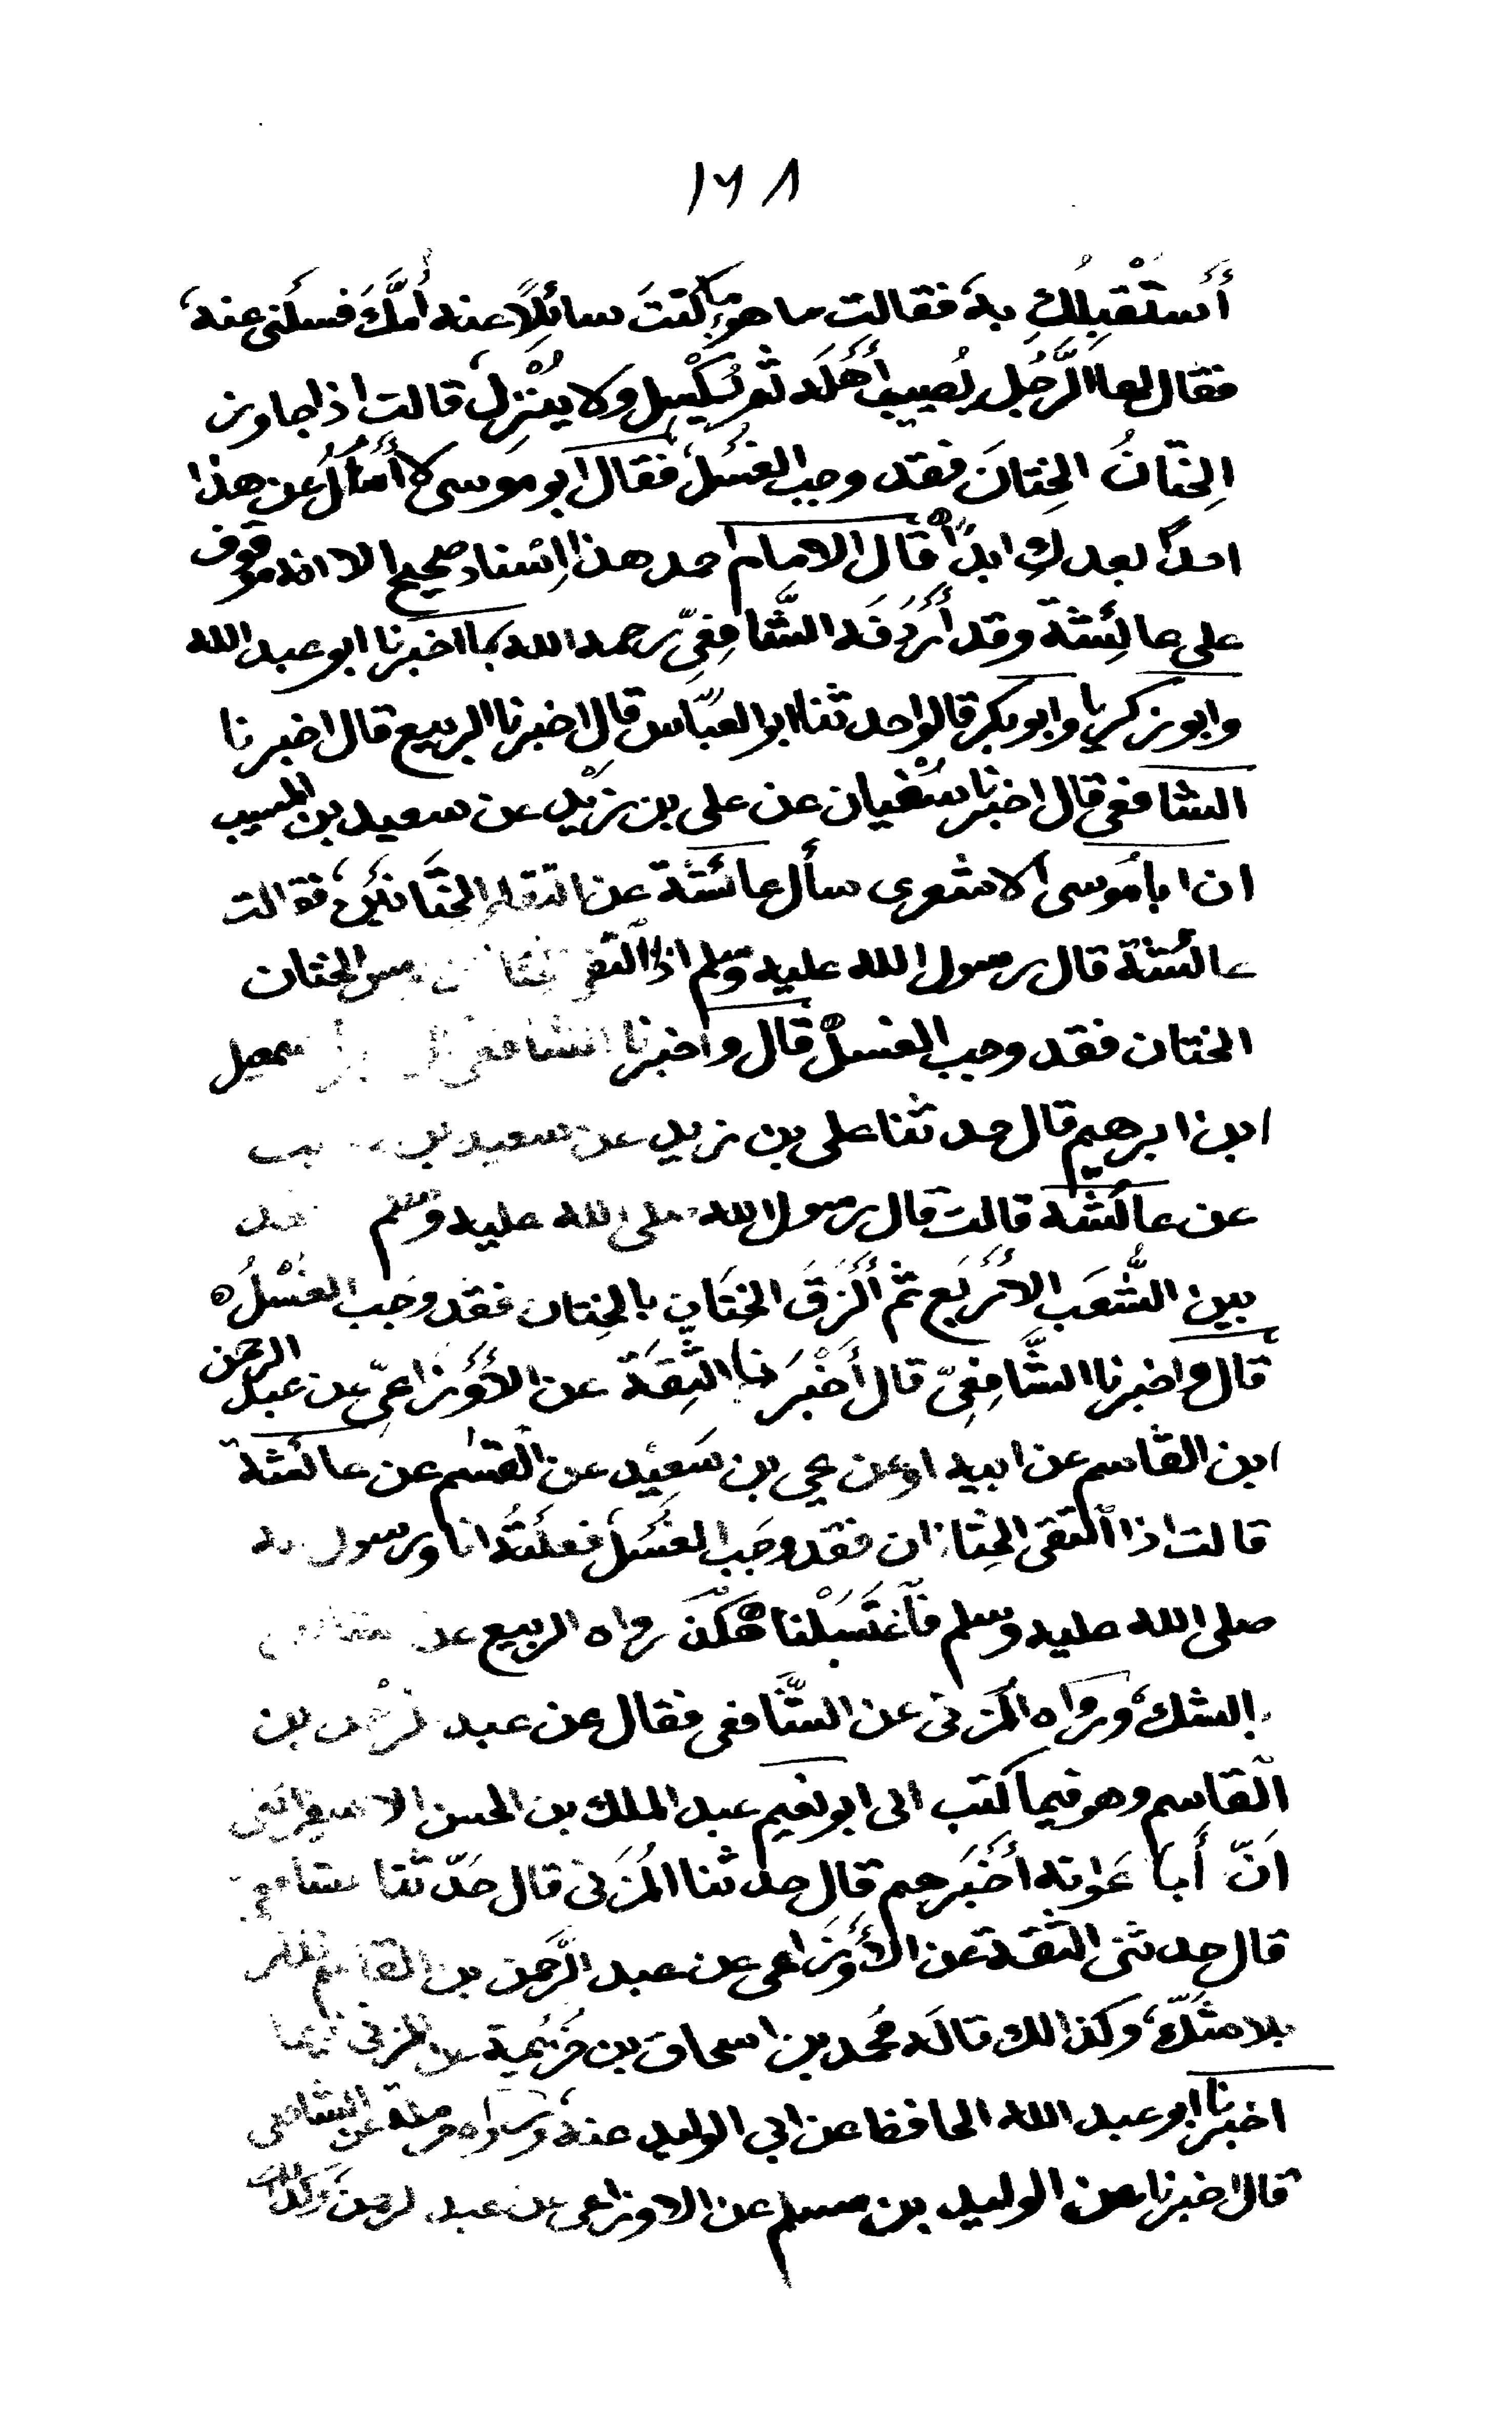 ١٦٨
أَسْتَقْبِلُكِ به فقالت ما هو ما كنتَ سائلًا عنه أُمَّكَ فسلنى عنه
فقال لها الرَّجُل يُصيبُ أَهْلَه ثم يُكْسِل ولا يُنْزِل قالت اذا جاوز
الخِتَانُ الخِتَانَ فقد وجب الغُسْلُ فقال ابو موسى لا أَسْأَلُ عن هذا
احدًا بعدك ابدًا قال الامام احمد هذا اِسْناد صحيح الا انه موقوف
على عائشة وقد أَرْدَفَه الشَّافِعِيّ رحمه الله بما اخبرنا ابو عبد الله
وابو زكريا وابو بكر قالوا حدثنا ابو العبّاس قال اخبرنا الربيع قال اخبرنا
الشافعى قال اخبرنا سُفْيان عن على بن زَيْدٍ عن سعيد بن المسيب
ان ابا مُوسى الاشعرى سأل عائشة عن التقاء الخِتَانَيْنِ فقالت
عائشة قال رسول الله عليه وسلم اذا التقى ومس الختان
الختان فقد وجب الغسل قال واخبرنا الشافعى
ابن ابرهيم قال حدثنا على بن زيد عن سعيد بن
عن عائشة قالت قال رسول الله صلى الله عليه وسلم
بين الشُّعَب الأَرْبَع ثم أَلْزَقَ الخِتَان بالخِتان فقد وجَب الغُسْلُ ه
قال واخبرنا الشَّافِعِيّ قال أَخْبَرَنا الثِقَةُ عن الأَوْزاعِيّ عن عبد الرحمن
ابن القاسم عن ابيه او عن يحيى بن سَعِيْد عن القسم عن عائشة
قالت اذا التقى الخِتانان فقد وجَب الغُسْل فعلتُه انا ورسول
صلى الله عليه وسلم فاغْتَسَلْنا هكذى رواه الربيع عن
بالشك ورواه المزنى عن الشَّافعى فقال عن عبد الرحمن بن
القاسم وهو فيما كتب الى ابو نعيم عبد الملك بن الحسن الاسفرائنى
اَنّ أَبا عَوانه أَخْبَرهم قال حدثنا المُزَنى قال حَدّثنا الشافعى
قال حدثنى الثقة عن الأَوْزاعى عن عبد الرَّحمن بن القاسم
بلا شَكّ وكذالك قالَه مُحَمد بن اسحاق بن خُزَيْمة عن المزنى فيما
اخبرنا ابو عبد الله الحافظ عن ابي الوليد عنه ورواه حرملة عن الشافعى
قال اخبرنا عن الوليد بن مسلم عن الاوزاعى عن عبد الرحمن وكذلك